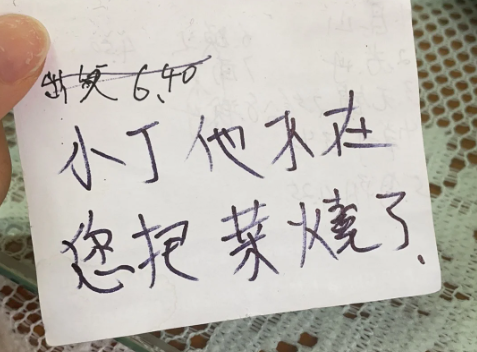 6.40
小丁他不在
您把菜燒了.